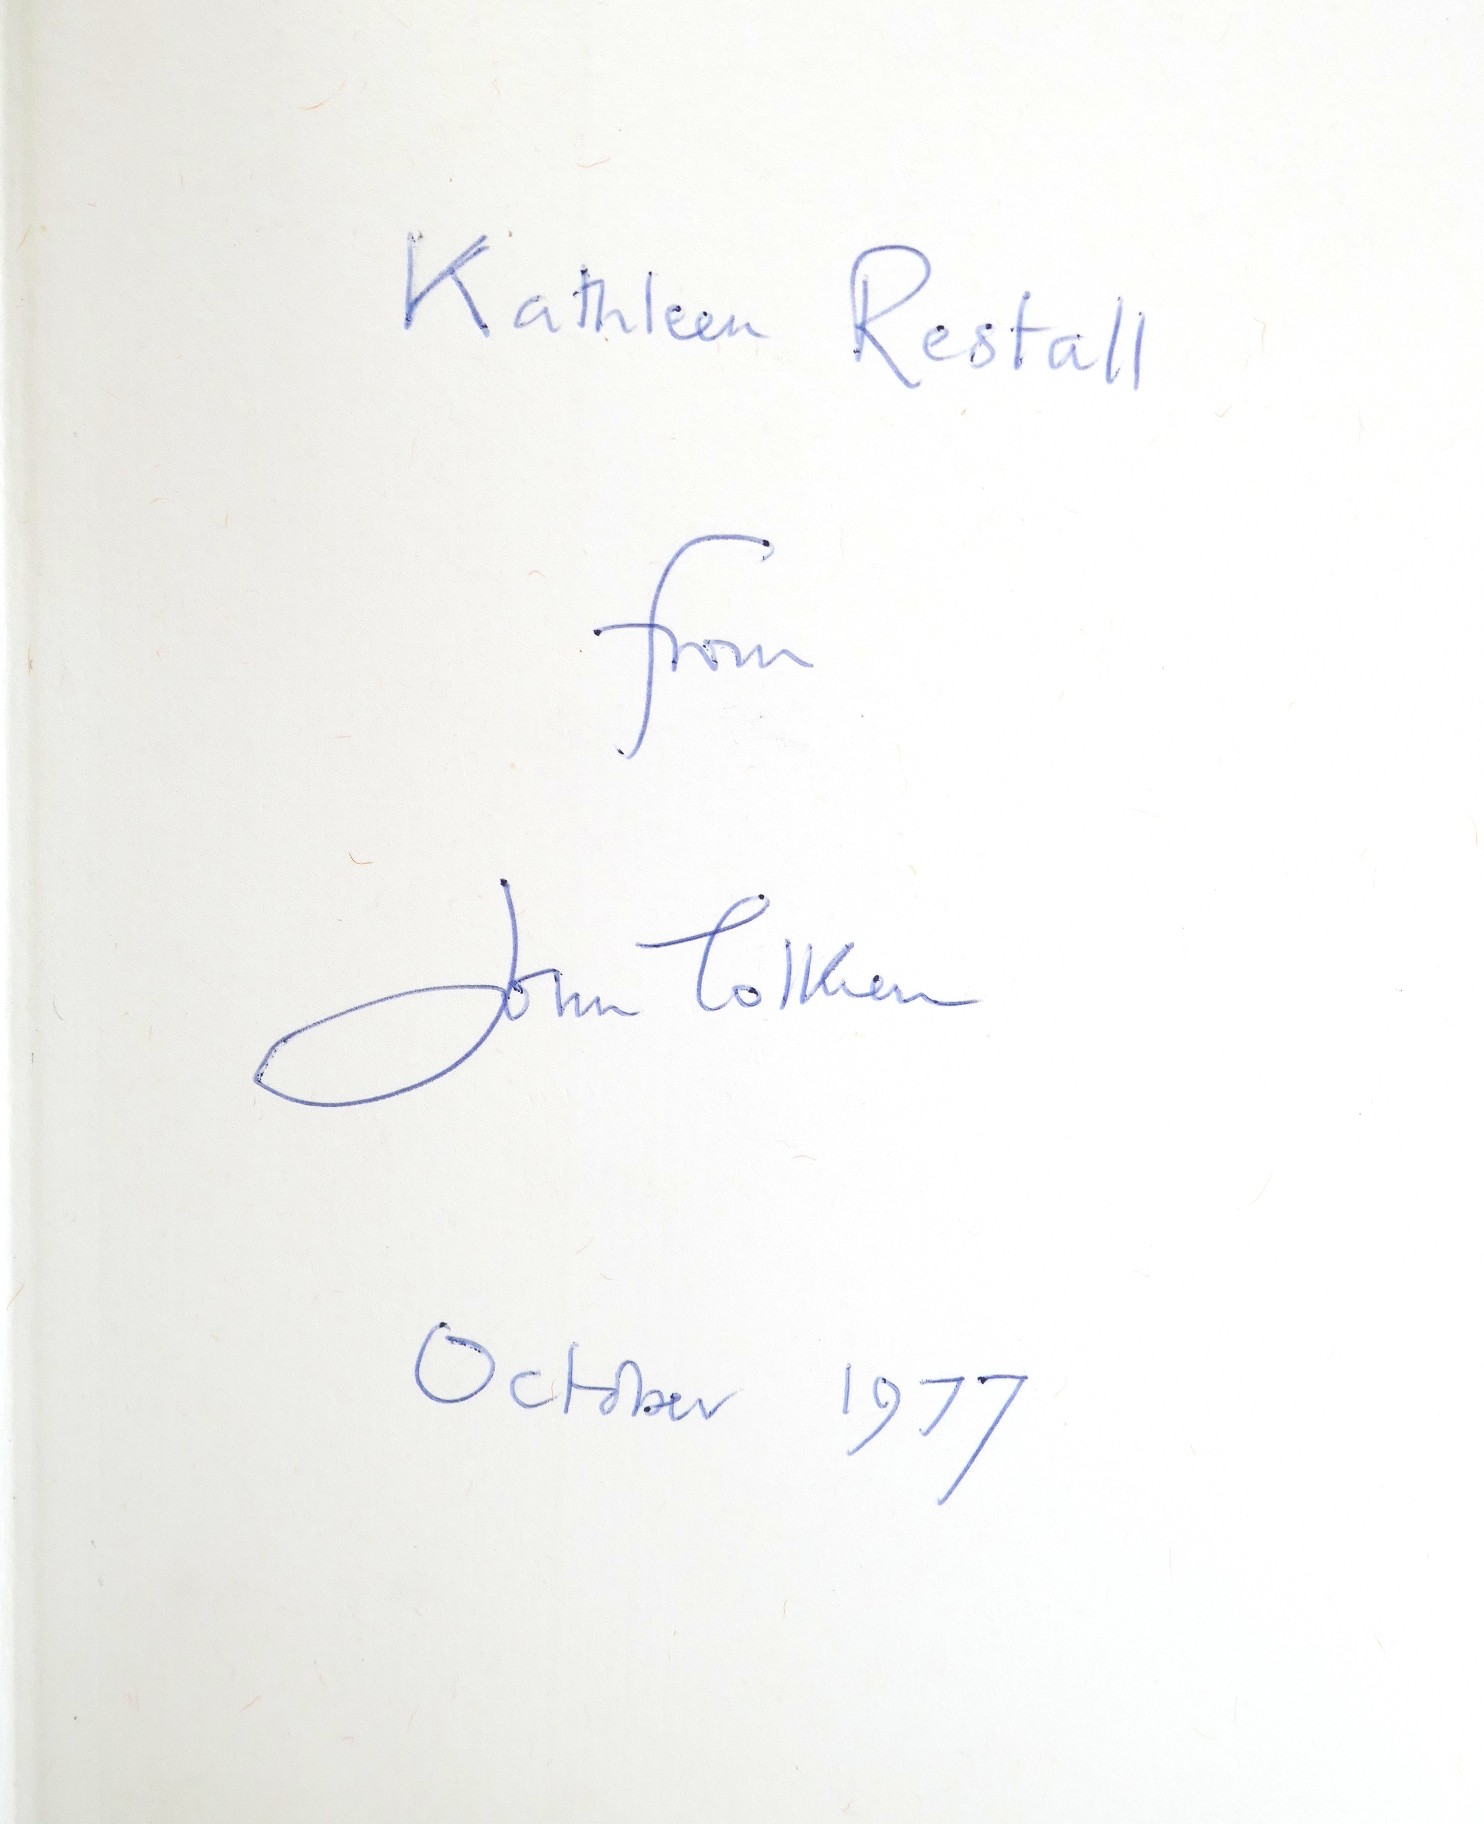 Kathleen Restall
from
John Tolkien
October 1977